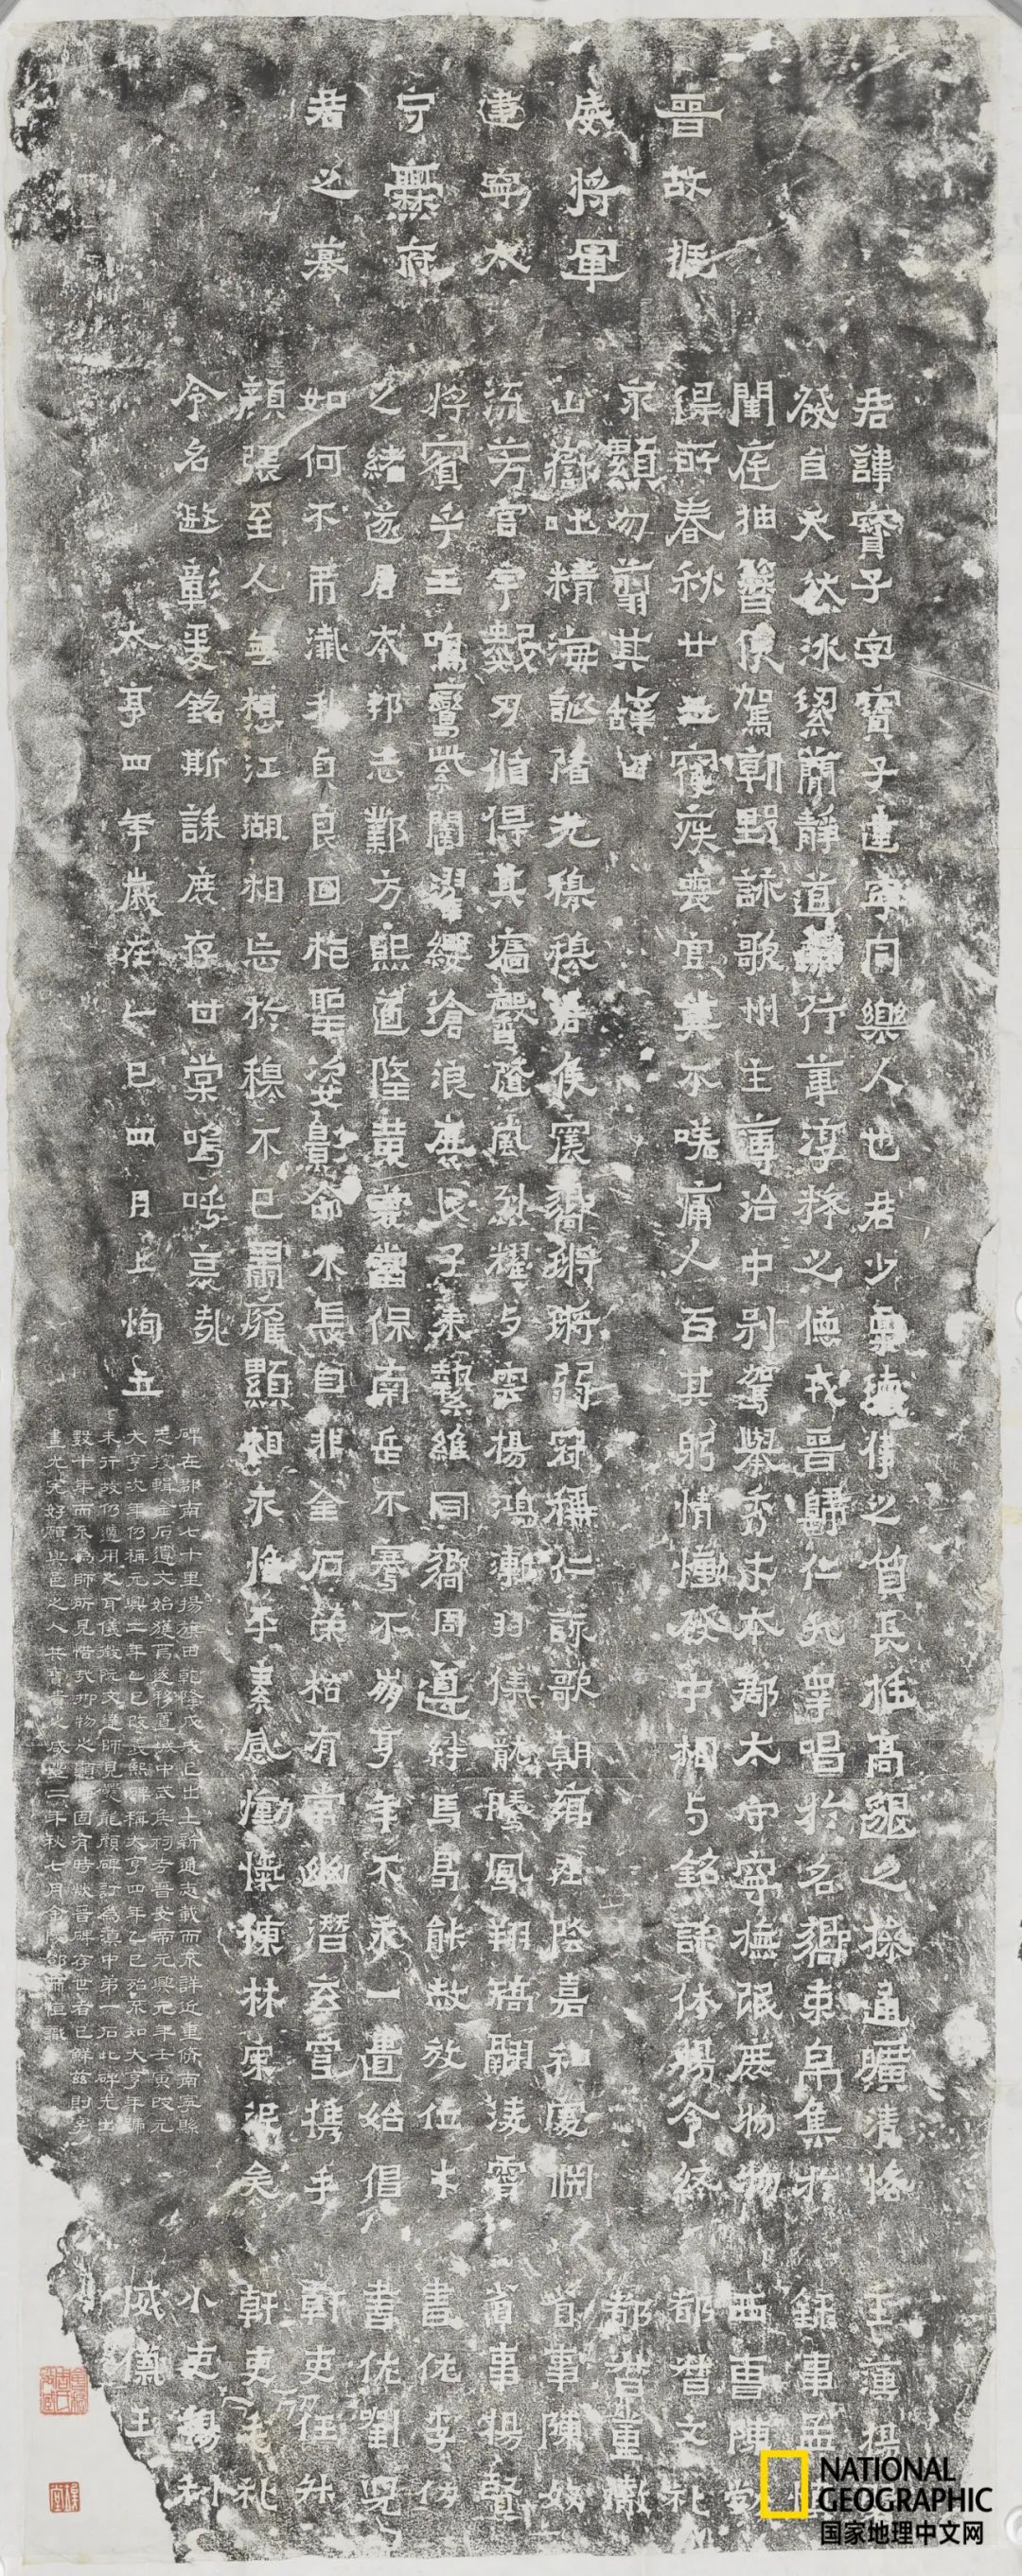 晉故振
威將軍
建寧太
守爨府
君之墓
君諱寶子字寶子建寧同樂人也君少稟瓌偉之質長挺高邈之操通曠清恪
發自天然冰絜簡靜道兼行葦淳粹之德戎晉歸仁九皋唱於名嚮束帛集於
閨庭抽簪俟駕朝野詠歌州主簿治中別駕舉秀才本郡太守寧撫氓庶物物
得所春秋廿五寢疾喪官莫不嗟痛人百其躬情慟發中相與銘誄休揚令終
永顯勿翦其辭曰
山嶽吐精海誕陼光穆穆君侯震嚮鏘鏘弱冠稱仁詠歌朝鄉在陰嘉和處淵
流芳宮宇數仞循得其墻馨隨風烈耀與雲揚鴻漸羽儀龍騰鳳翔矯翮凌霄
將賓乎王鳴鸞紫闥濯纓滄浪庶民子來縶維同嚮周遵絆馬曷能赦放位才
之緒遂居本邦志鄴方熙道隆黃裳當保南岳不騫不崩享年不永一匱始倡
如何不弔殲我貞良回抱聖姿影命不長自非金石榮枯有常幽潛玄穹攜手
顏張至人無想江湖相忘於穆不已肅雍顯相永惟平素感慟忾慷林宗沒矣
令名遐彰爰銘斯誄庶存甘棠嗚呼哀哉
太亨四年歲在乙巳四月上恂立
碑在郡南七十里揚旗田乾隆戊戌已出土新通志載而不詳近重修南寧縣
志搜輯金石遺文始獲焉遂移置城中武侯祠考晉安帝元興元年壬寅改元
大亨次年仍稱元興二年乙巳改義熙碑稱大亨四年乙巳殆不知大亨年號
未行故仍遵用之耳儀徵阮文達師見爨龍顏碑訂為滇中第一石此碑先出
數十年而不為師所見惜哉抑物之顯晦固有時歟晉碑存世者已鮮茲則字
畫尤完好願與邑之人共寶貴之咸豐二年秋七月金陵鄧爾恒識
主簿楊
錄事孟慎
西曹陳勃
都督文禮
都督董徹
省事陳奴
省事楊賢
書佐李仂
書佐劉兒
幹吏任升
幹吏毛禮
小吏楊利
威儀王
NATIONAL
GEOGRAPHIC
国家地理中文网